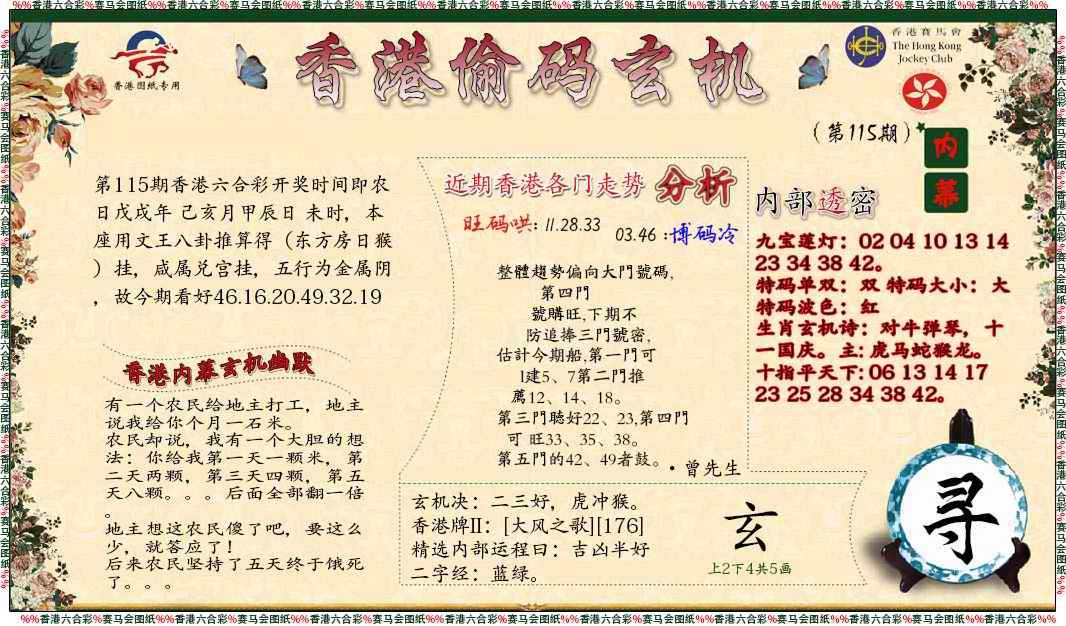 %%香港六合彩%赛马会图纸%%香港六合彩%赛马会图纸%%香港六合彩%赛马会图纸%%香港六合彩%赛马会图纸%%香港六合彩%赛马会图纸%%香港六合彩%赛马会图纸%%香港六合彩%%
香港图纸专用
香港偷码玄机
香港賽馬會
The Hong Kong
Jockey Club
(第115期)
内
幕
第115期香港六合彩开奖时间即农
日戊戌年 己亥月甲辰日 未时，本
座用文王八卦推算得（东方房日猴
）挂，咸属兑宫挂，五行为金属阴
，故今期看好46.16.20.49.32.19
香港内幕玄机幽默
有一个农民给地主打工，地主
说我给你个月一石米。
农民却说，我有一个大胆的想
法：你给我第一天一颗米，第
二天两颗，第三天四颗，第五
天八颗。。。后面全部翻一倍
。
地主想这农民傻了吧，要这么
少，就答应了！
后来农民坚持了五天终于饿死
了。。。
近期香港各门走势 分析
旺码哄: 11.28.33
03.46 :博码冷
整體趨勢偏向大門號碼,
第四門
號購旺,下期不
防追捧三門號密,
估計今期船,第一門可
l建5、7第二門推
薦12、14、18。
第三門聴好22、23,第四門
可 旺33、35、38。
第五門的42、49者鼓。
·曾先生
玄机决：二三好，虎冲猴。
香港牌II：[大风之歌][176]
精选内部运程曰：吉凶半好
二字经：蓝绿。
玄
上2下4共5画
内部透密
九宝莲灯：02 04 10 13 14
23 34 38 42。
特码单双：双 特码大小：大
特码波色：红
生肖玄机诗：对牛弹琴，十
一国庆。主: 虎马蛇猴龙。
十指平天下: 06 13 14 17
23 25 28 34 38 42。
寻
%%香港六合彩%赛马会图纸%%香港六合彩%赛马会图纸%%香港六合彩%赛马会图纸%%香港六合彩%赛马会图纸%%香港六合彩%赛马会图纸%%香港六合彩%赛马会图纸%%香港六合彩%%